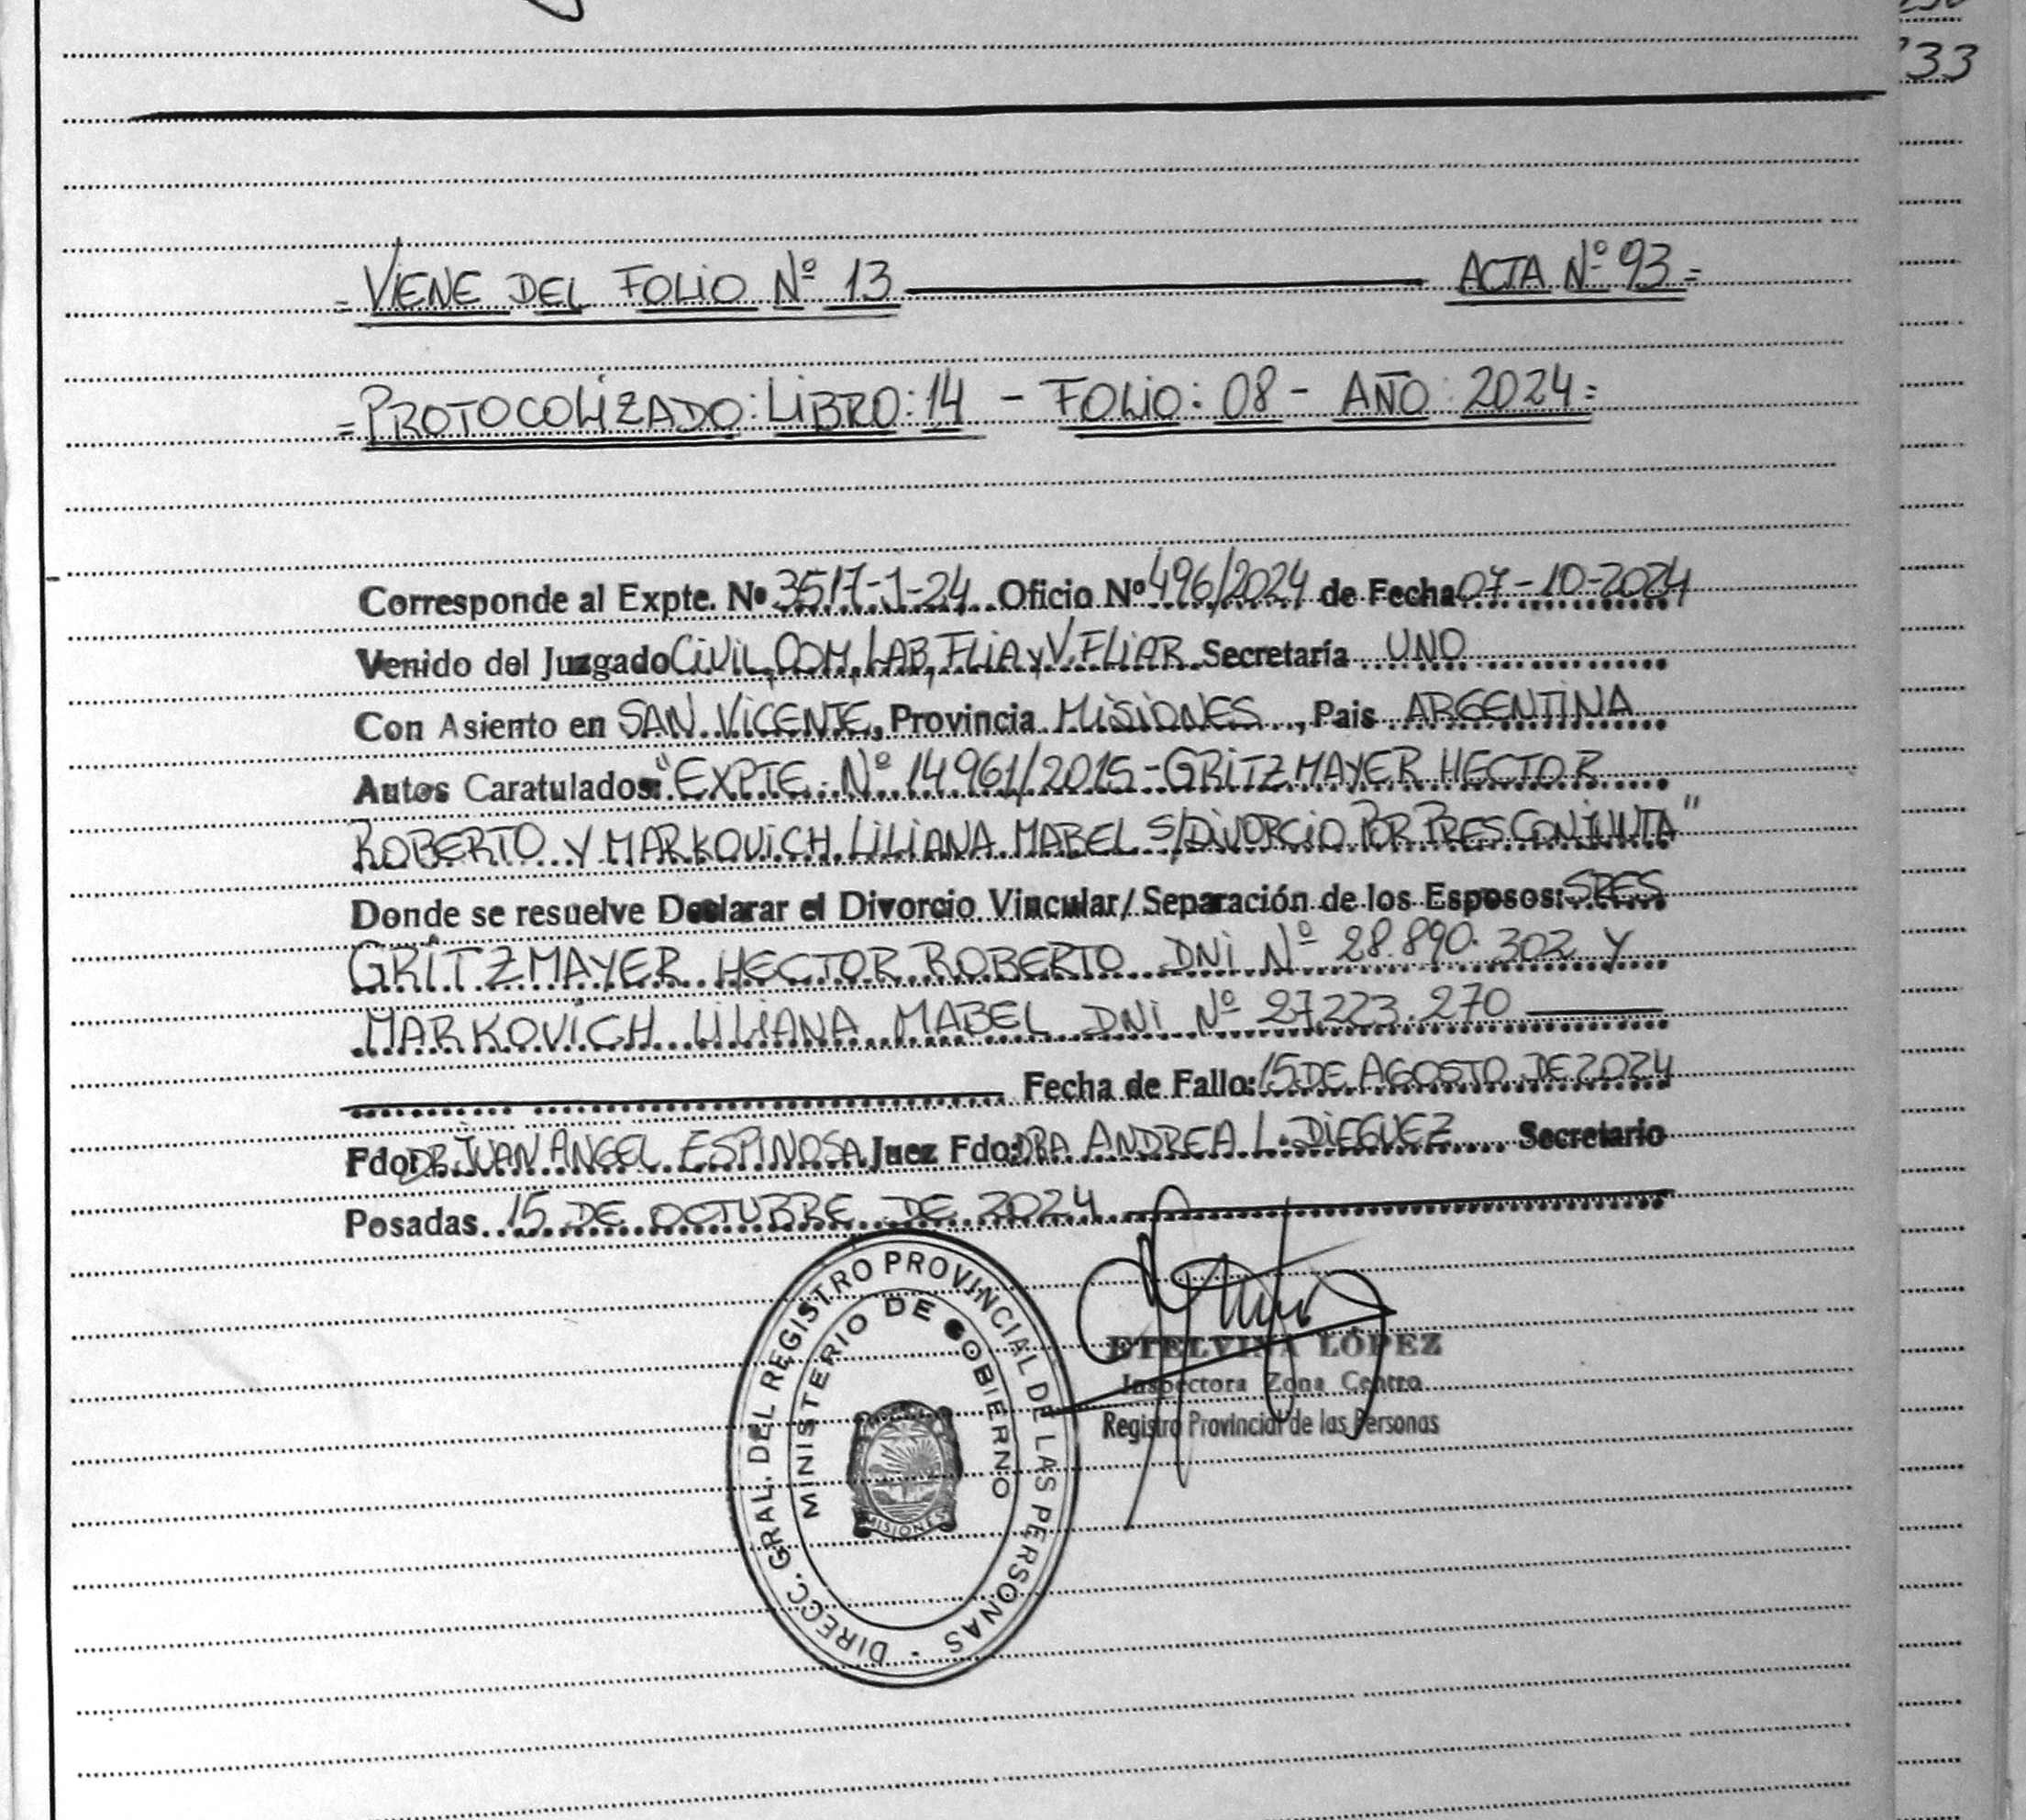 33
= VIENE DEL FOLIO Nº 13 ACTA Nº 93 =
= PROTOCOLIZADO: LIBRO: 14 - FOLIO: 08 - AÑO: 2024 =
Corresponde al Expte. Nº 3517-J-24 Oficio Nº 496/2024 de Fecha 07-10-2024
Venido del Juzgado CIVIL, COM, LAB, FLIA y V. FLIAR Secretaría UNO
Con Asiento en SAN VICENTE, Provincia MISIONES, Pais ARGENTINA
Autos Caratulados: "EXPTE. Nº 14961/2015 - GRITZMAYER HECTOR
ROBERTO Y MARKOVICH LILIANA MABEL S/DIVORCIO POR PRES CONJUNTA"
Donde se resuelve Declarar el Divorcio Vincular/Separación de los Esposos: SRES
GRITZMAYER HECTOR ROBERTO DNI Nº 28.890.302 Y
MARKOVICH LILIANA MABEL DNI Nº 27223.270
Fecha de Fallo: 15 DE AGOSTO DE 2024
Fdo: DR. JUAN ANGEL ESPINOSA Juez Fdo: DRA ANDREA L. DIEGUEZ Secretario
Posadas 15 DE OCTUBRE DE 2024
DIRECC. GRAL. DEL REGISTRO PROVINCIAL DE LAS PERSONAS
MINISTERIO DE GOBIERNO
MISIONES
ETELVINA LÓPEZ
Inspectora Zona Centro
Registro Provincial de las Personas